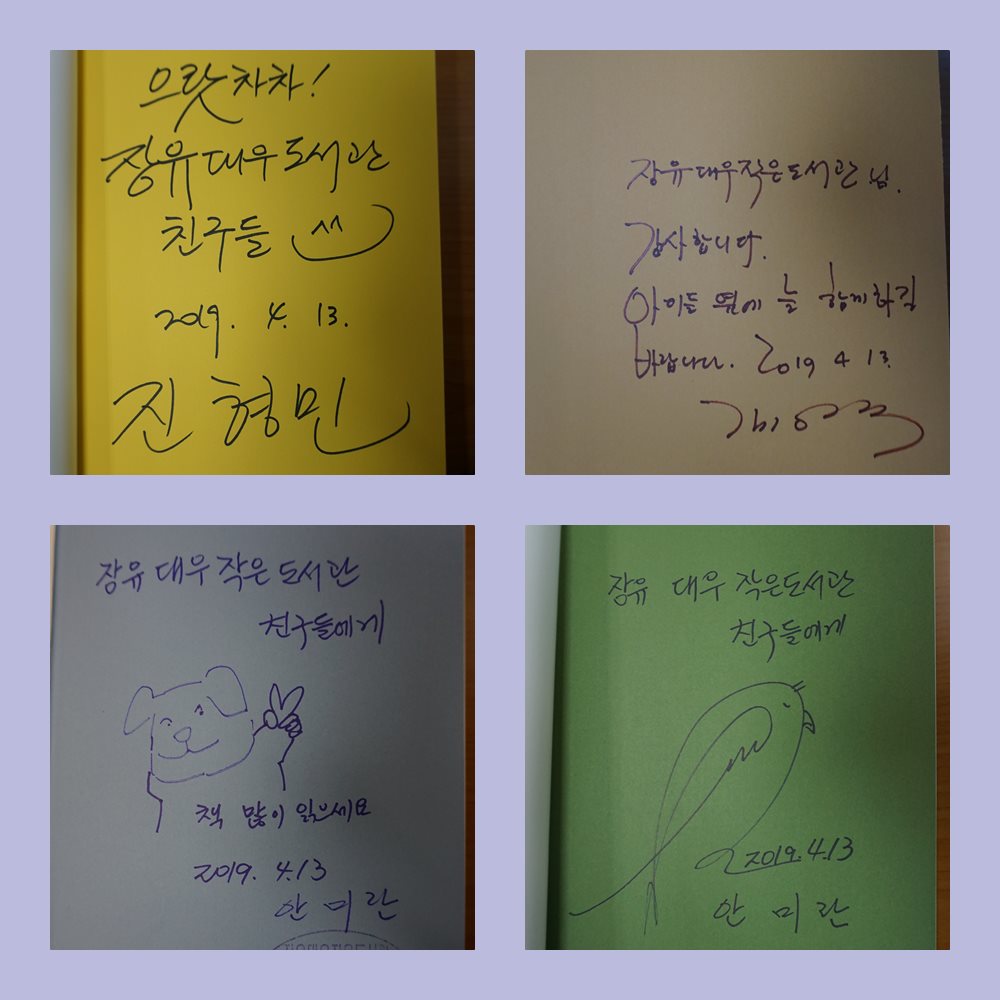 으랏차차!
장유대우도서관
친구들
2019. 4. 13.
진형민
장유대우작은도서관님.
감사합니다.
아이들 옆에 늘 함께하길
바랍니다. 2019 4 13.
장유 대우 작은 도서관
친구들에게
책 많이 읽으세요
2019. 4.13
안미란
장유 대우 작은도서관
친구들에게
2019. 4.13
안미란